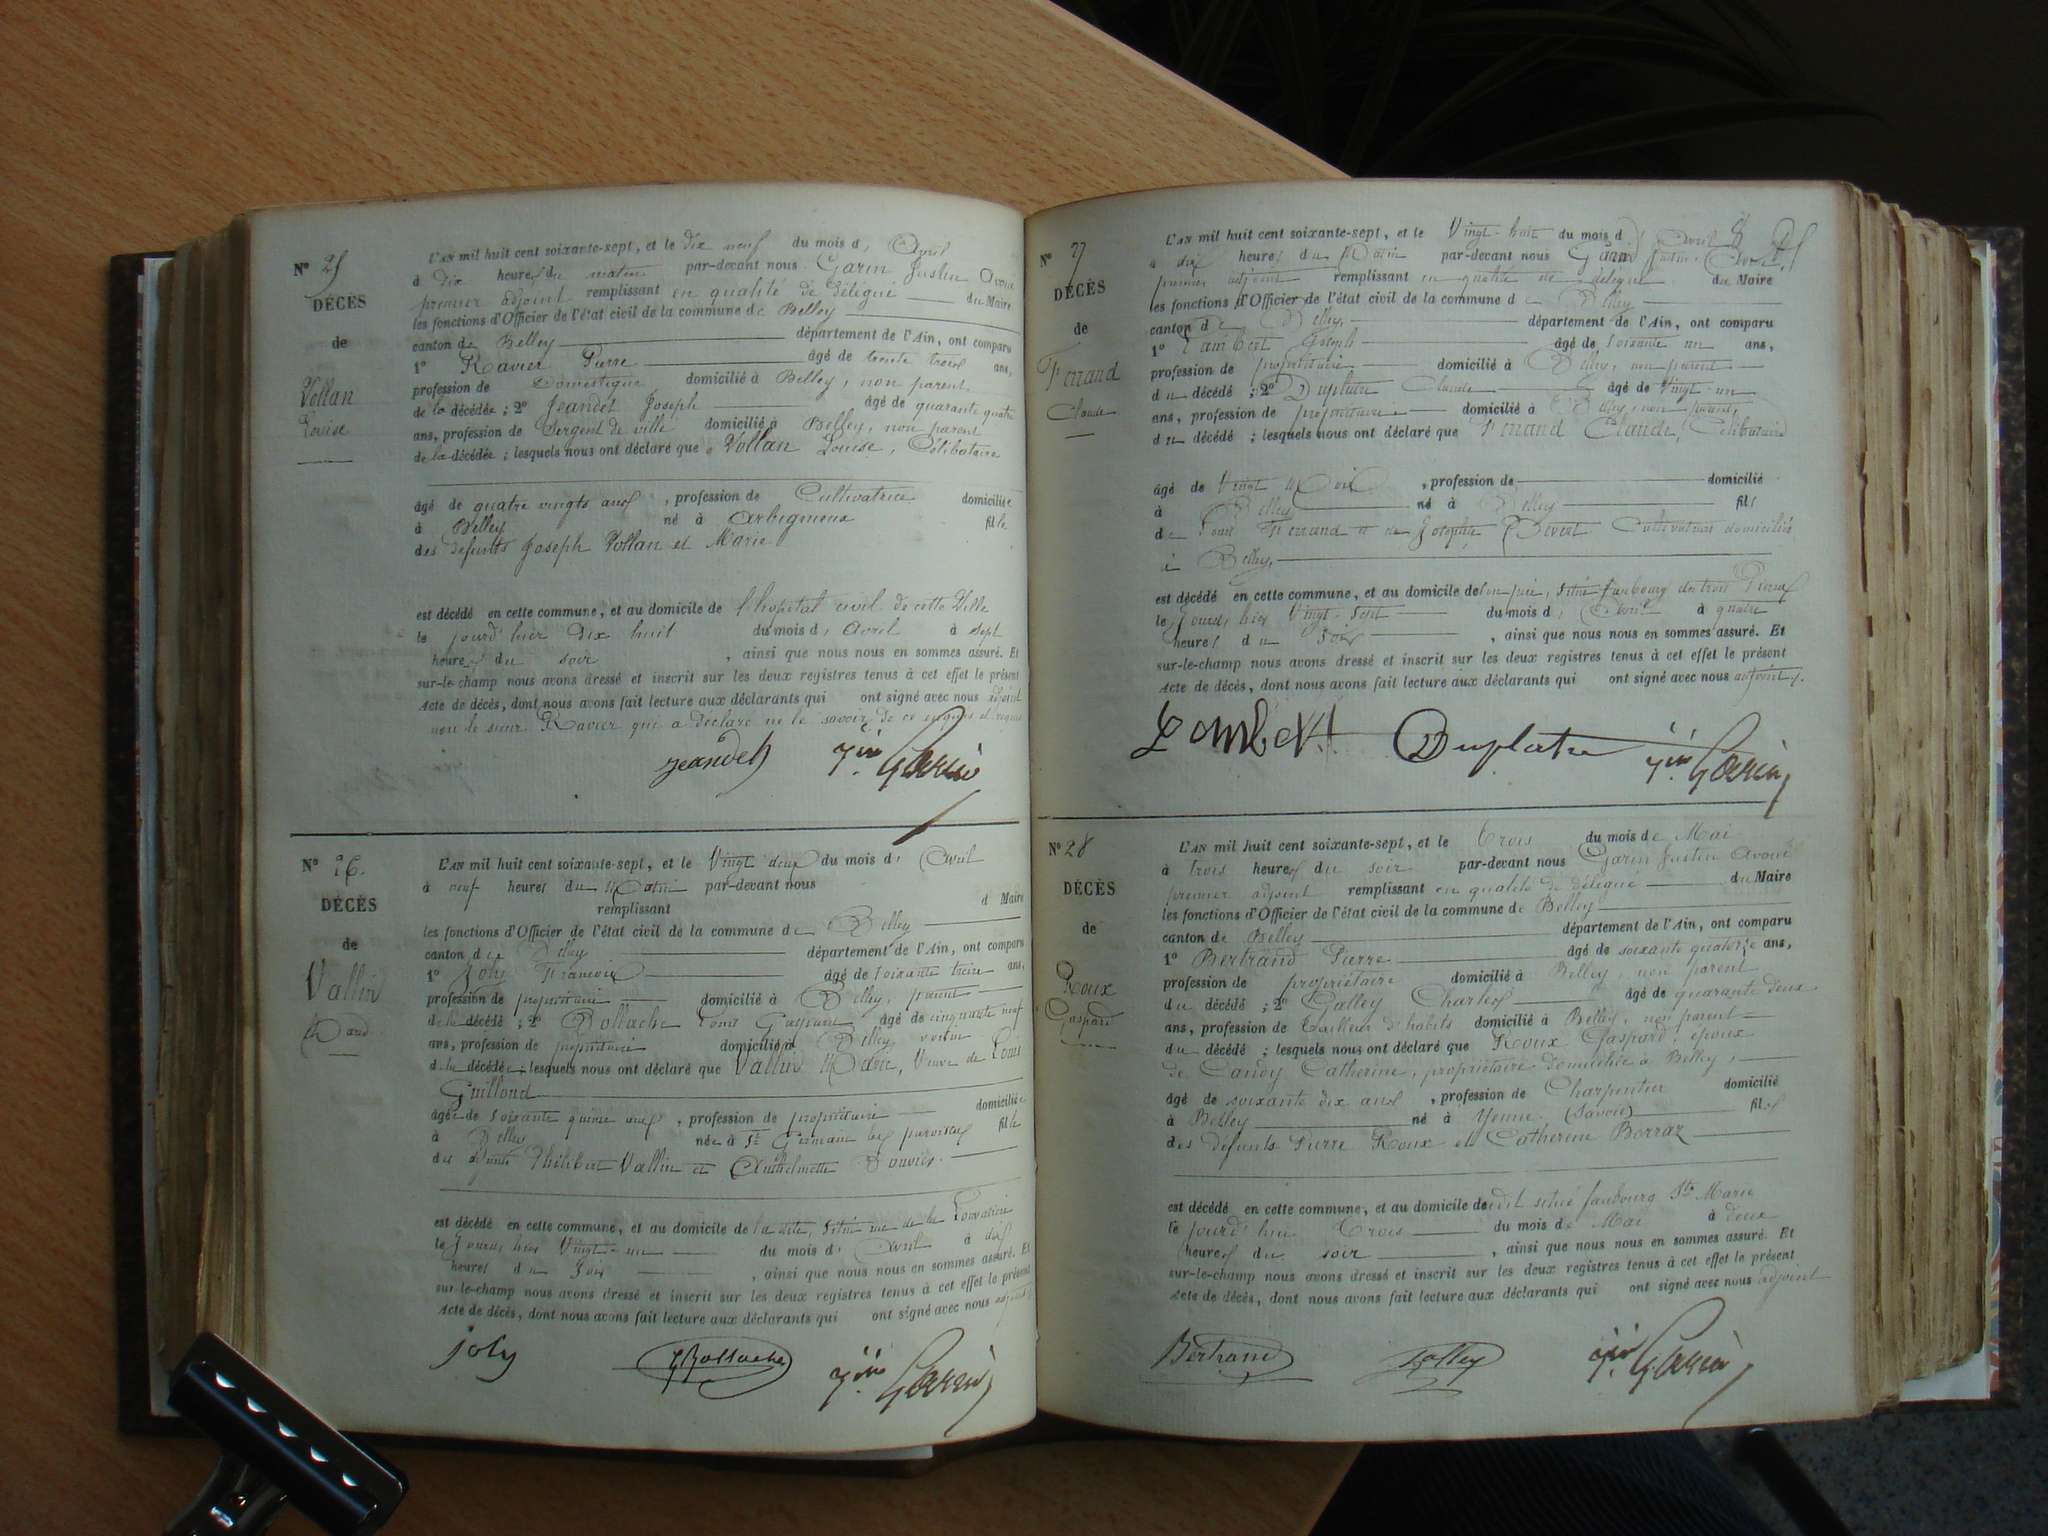 N° 25
DÉCÈS
de
Vollan
Louise
L'AN mil huit cent soixante-sept, et le dix neuf du mois d' Avril
à dix heures du matin par-devant nous Garin Justin Avoué
premier adjoint remplissant en qualité de délégué du Maire
les fonctions d'Officier de l'état civil de la commune de Belley
canton de Belley département de l'Ain, ont comparu
1° Ravier Pierre âgé de trente trois ans,
profession de Domestique domicilié à Belley, non parent
de la décédée ; 2° Jeandet Joseph âgé de quarante quatre
ans, profession de Sergent de ville domicilié à Belley, non parent
de la décédée ; lesquels nous ont déclaré que Vollan Louise, Célibataire
âgé de quatre vingts ans, profession de Cultivatrice domiciliée
à Belley né à Arbignieu fille
des défunts Joseph Vollan et Marie
est décédé en cette commune, et au domicile de l'hopital civil de cette Ville
le jourd'hier dix huit du mois d' Avril à sept
heures du soir, ainsi que nous nous en sommes assuré. Et
sur-le-champ nous avons dressé et inscrit sur les deux registres tenus à cet effet le présent
Acte de décès, dont nous avons fait lecture aux déclarants qui ont signé avec nous adjoint
non le sieur Ravier qui a déclaré ne le savoir de ce enquis et requis
Jeandet Jin Garin
N° 26.
DÉCÈS
de
Vallin
Marie
L'AN mil huit cent soixante-sept, et le Vingt deux du mois d' Avril
à neuf heures du Matin par-devant nous
remplissant d Maire
les fonctions d'Officier de l'état civil de la commune de Belley
canton de Belley département de l'Ain, ont comparu
1° Joly François âgé de soixante treize ans,
profession de propriétaire domicilié à Belley, parent
de la décédée ; 2° Bollache Louis Gaspard âgé de cinquante neuf
ans, profession de propriétaire domicilié à Belley voisin
de la décédée ; lesquels nous ont déclaré que Vallin Marie, Veuve de Louis
Guilloud
âgée de soixante quinze ans, profession de propriétaire domiciliée
à Belley née à St Germain les paroisses fille
des défunts Philibert Vallin et Anthelmette Douvres
est décédé en cette commune, et au domicile de la dite, située rue de la
le jourd'hier Vingt-un du mois d' Avril à dix
heures du Soir, ainsi que nous nous en sommes assuré. Et
sur-le-champ nous avons dressé et inscrit sur les deux registres tenus à cet effet le présent
Acte de décès, dont nous avons fait lecture aux déclarants qui ont signé avec nous adjoint
joly Bollache Jin Garin
N° 27
DÉCÈS
de
Ferrand
Claude
L'AN mil huit cent soixante-sept, et le Vingt-huit du mois d' Avril
à dix heures du Matin par-devant nous Garin Justin Avoué
premier adjoint remplissant en qualité de délégué du Maire
les fonctions d'Officier de l'état civil de la commune de Belley
canton de Belley département de l'Ain, ont comparu
1° Lambert Joseph âgé de soixante un ans,
profession de propriétaire domicilié à Belley, non parent
du décédé ; 2° Duplatre Claude âgé de Vingt-un
ans, profession de propriétaire domicilié à Belley, non parent,
du décédé ; lesquels nous ont déclaré que Ferrand Claude, Célibataire
âgé de Vingt Mois, profession de domicilié
à Belley né à Belley fils
de Louis Ferrand et de Josephte Cultivateurs domiciliés
à Belley
est décédé en cette commune, et au domicile de son père, situé faubourg des trois Pierres
le Jourd'hier Vingt-sept du mois d' Avril à quatre
heures du Soir, ainsi que nous nous en sommes assuré. Et
sur-le-champ nous avons dressé et inscrit sur les deux registres tenus à cet effet le présent
Acte de décès, dont nous avons fait lecture aux déclarants qui ont signé avec nous adjoint.
Lambert Duplatre Jin Garin
N° 28
DÉCÈS
de
Roux
Gaspard
L'AN mil huit cent soixante-sept, et le Trois du mois de Mai
à trois heures du soir par-devant nous Garin Justin Avoué
premier adjoint remplissant en qualité de délégué du Maire
les fonctions d'Officier de l'état civil de la commune de Belley
canton de Belley département de l'Ain, ont comparu
1° Bertrand Pierre âgé de soixante quatorze ans,
profession de propriétaire domicilié à Belley, non parent
du décédé ; 2° Galley Charles âgé de quarante deux
ans, profession de tailleur d'habits domicilié à Belley, non parent
du décédé ; lesquels nous ont déclaré que Roux Gaspard, époux
de Candy Catherine, propriétaire domiciliée à Belley,
âgé de soixante dix ans, profession de Charpentier domicilié
à Belley né à Yenne (Savoie) fils
des défunts Pierre Roux et Catherine Borraz
est décédé en cette commune, et au domicile dudit situé faubourg Ste Marie
le jourd'hui Trois du mois de Mai à deux
heures du soir, ainsi que nous nous en sommes assuré. Et
sur-le-champ nous avons dressé et inscrit sur les deux registres tenus à cet effet le présent
Acte de décès, dont nous avons fait lecture aux déclarants qui ont signé avec nous adjoint
Bertrand Galley Jin Garin